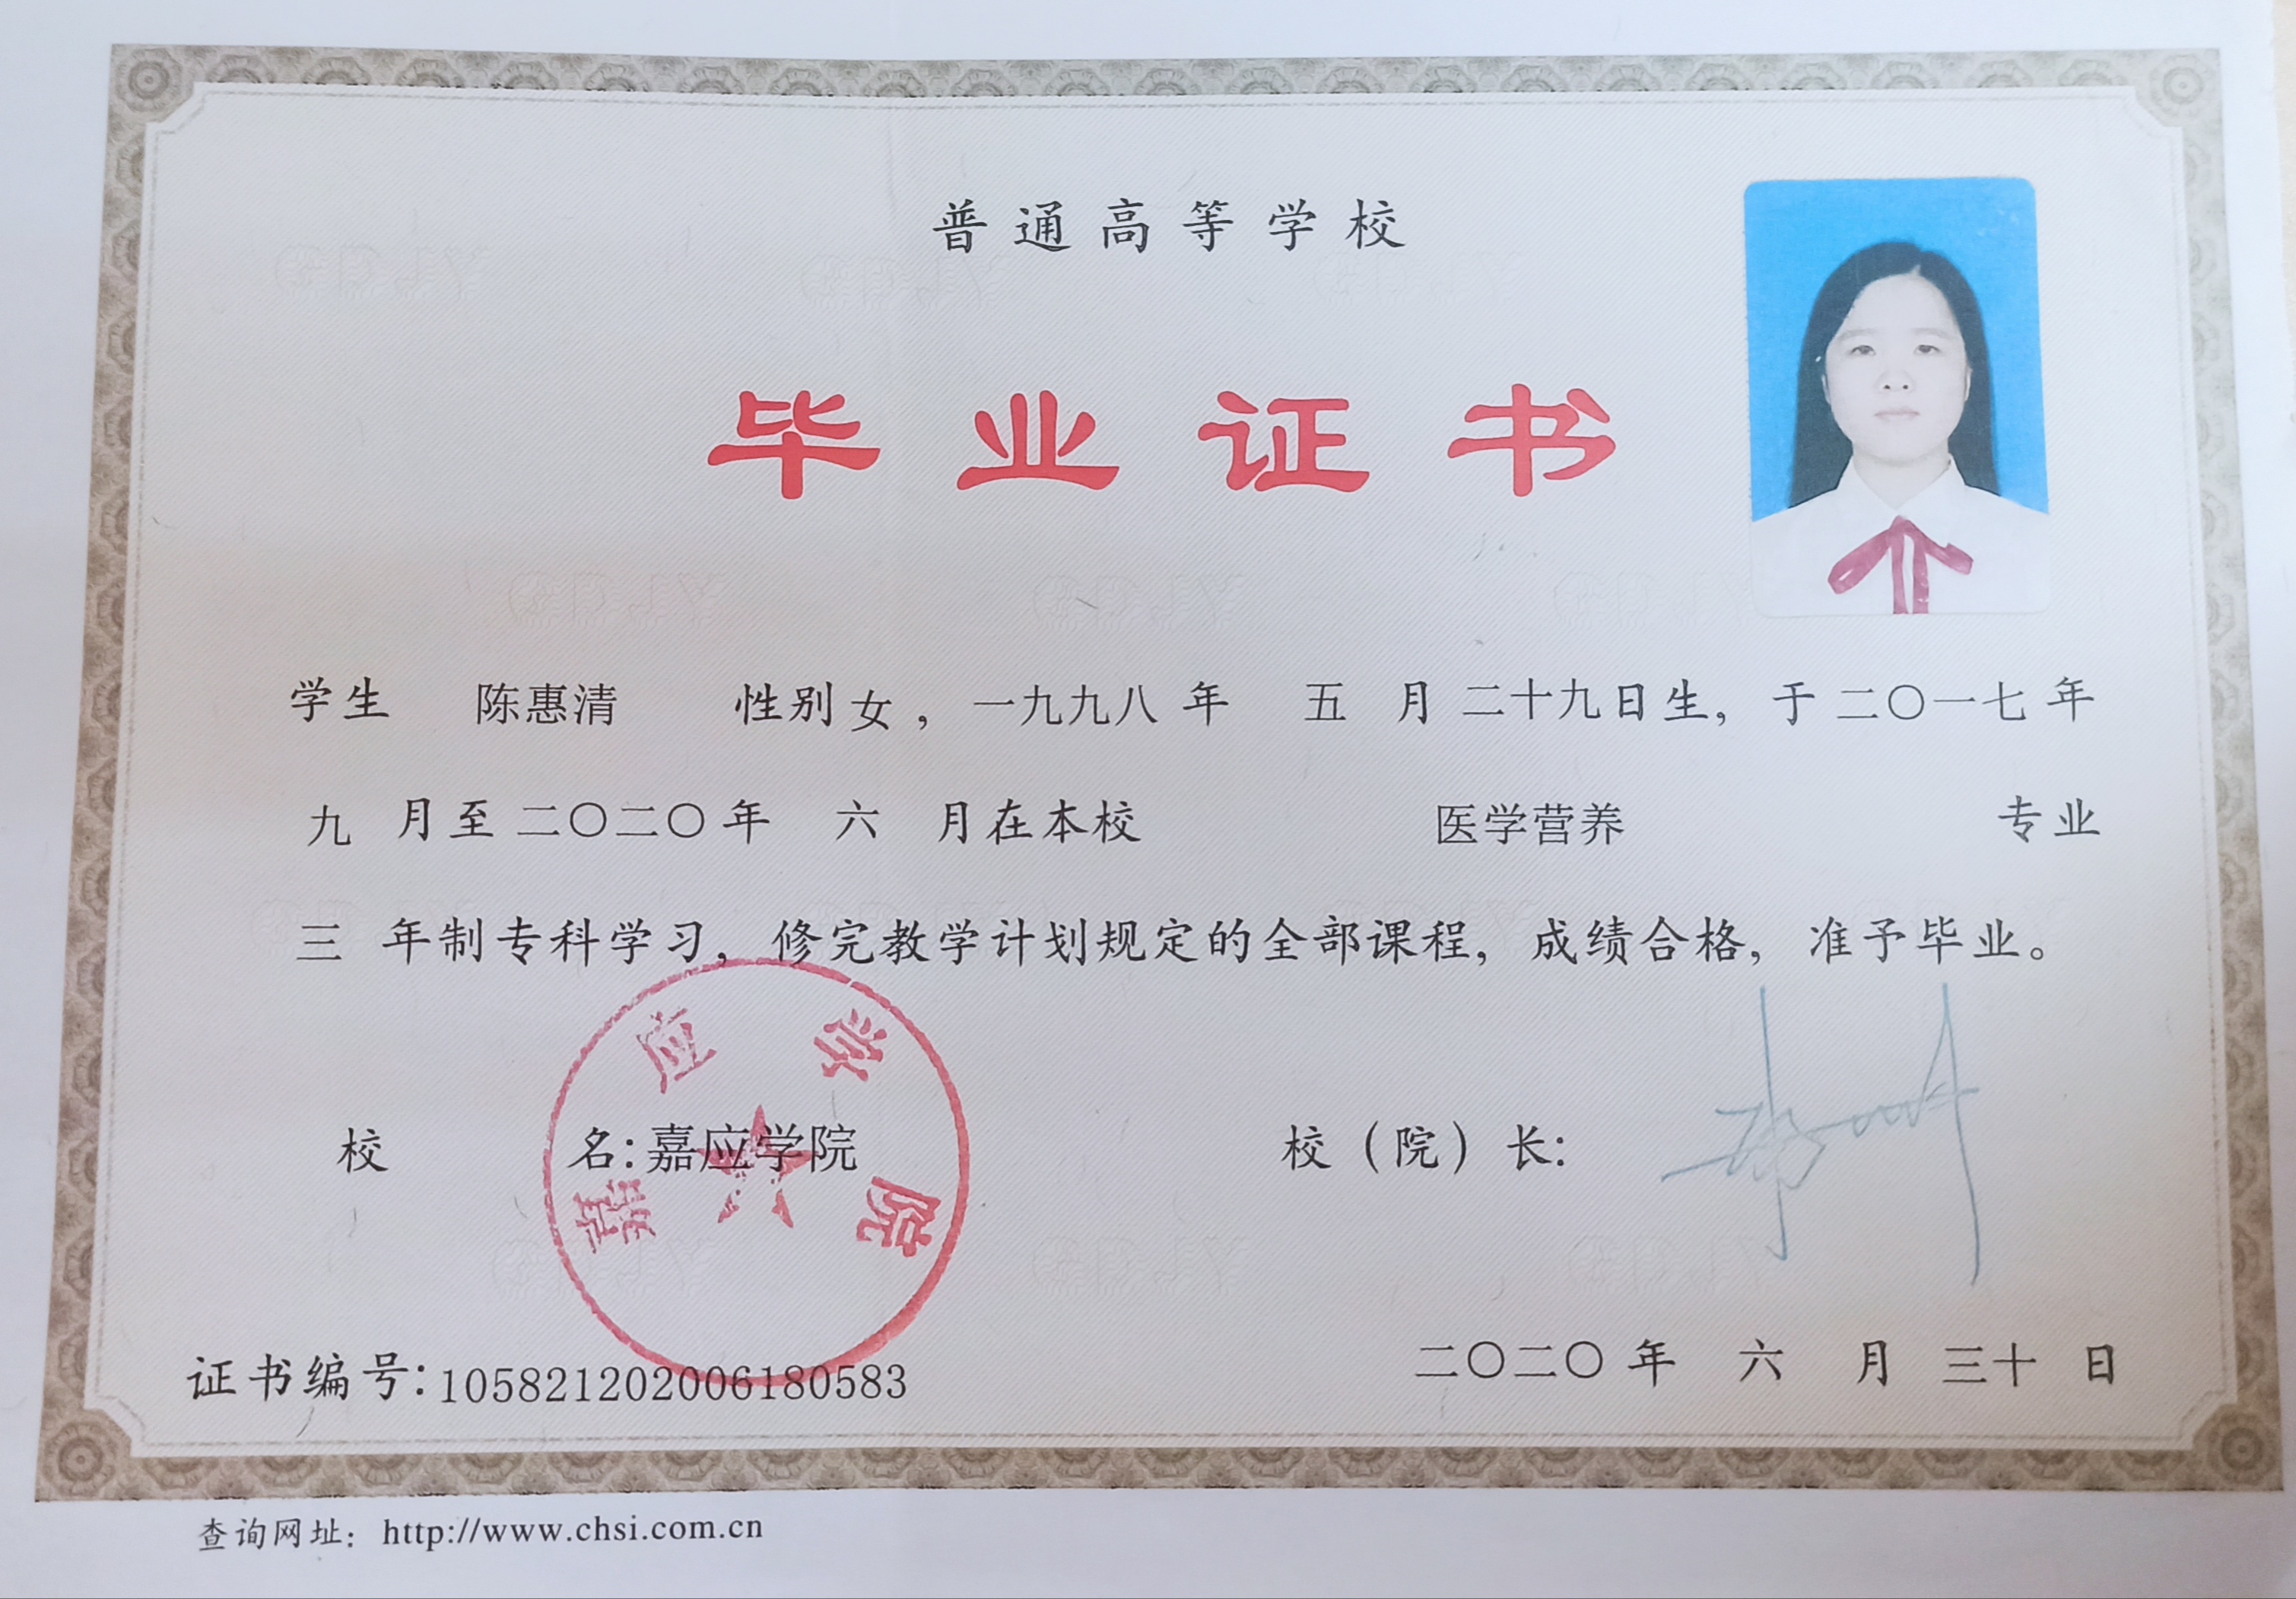 普通高等学校
毕业证书
学生 陈惠清 性别女，一九九八年 五 月二十九日生，于二〇一七年
九 月至二〇二〇年 六 月在本校 医学营养 专业
三 年制专科学习，修完教学计划规定的全部课程，成绩合格，准予毕业。
校 名：嘉应学院 校（院）长：
嘉应学院
证书编号：105821202006180583 二〇二〇年 六 月 三十 日
查询网址：http://www.chsi.com.cn